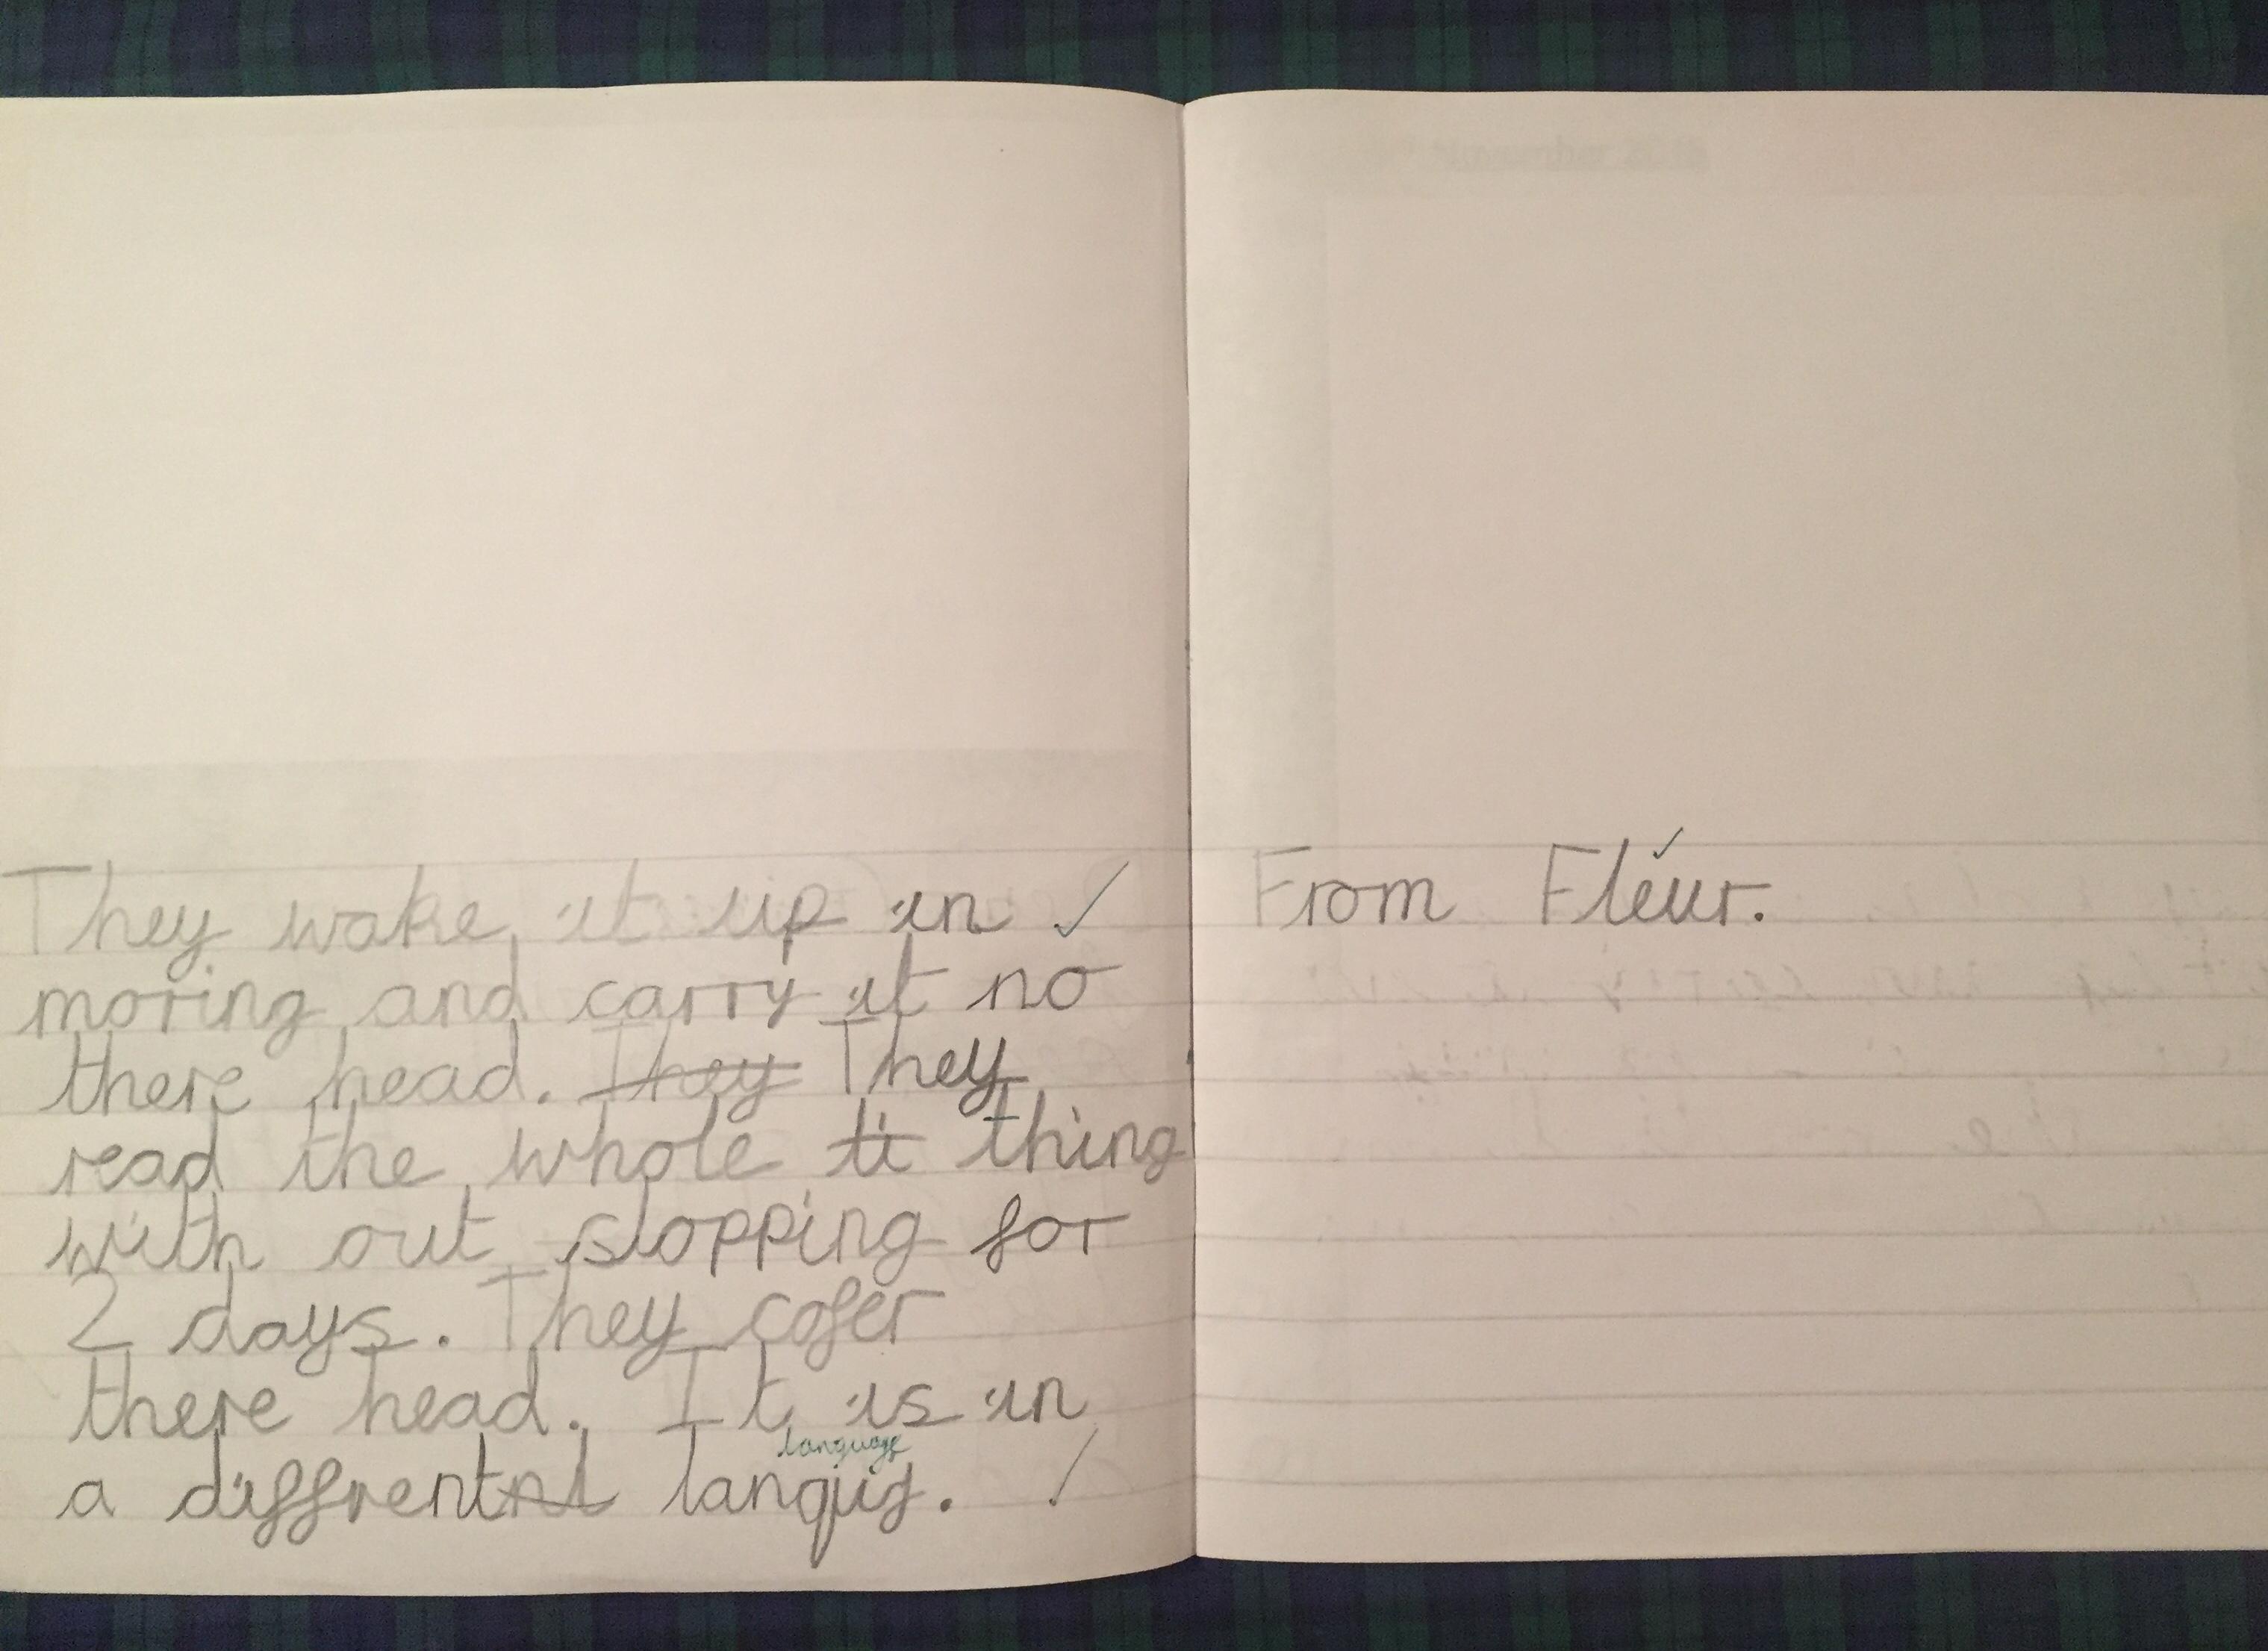 They wake it up in ✓
moring and carry it no
there head. ~~They~~ They
read the whole ~~ti~~ thing
with out stopping for
2 days. They cofer
there head. It is in
language
a diffrent~~nt~~ languig. ✓
From Fleur.
November